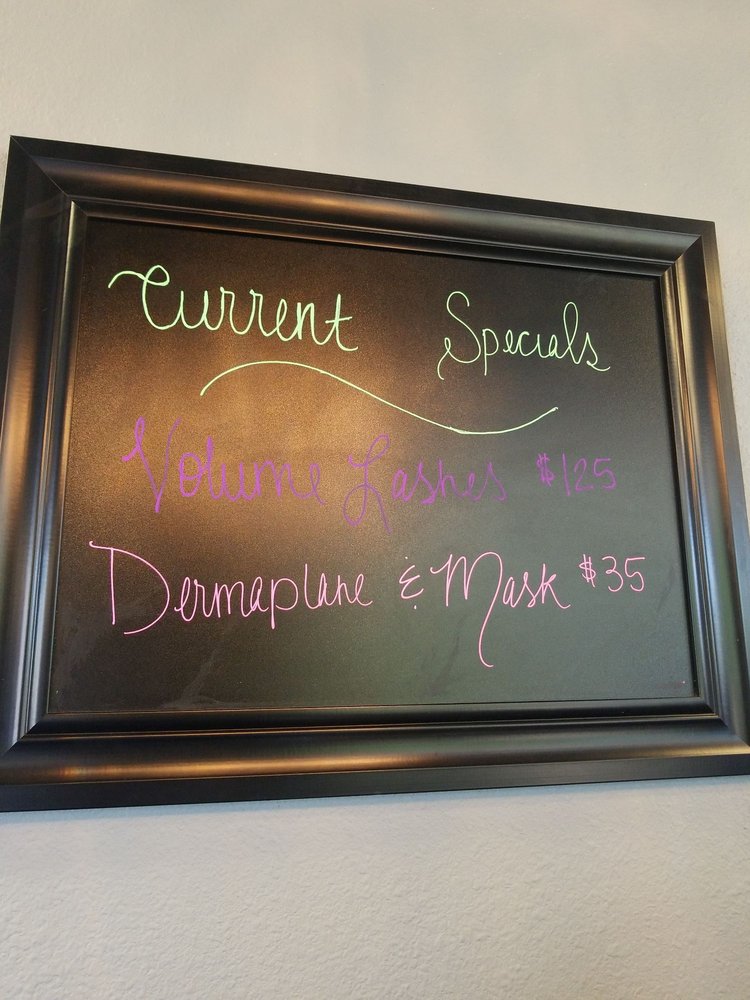 Current Specials
Volume Lashes $125
Dermaplane & Mask $35